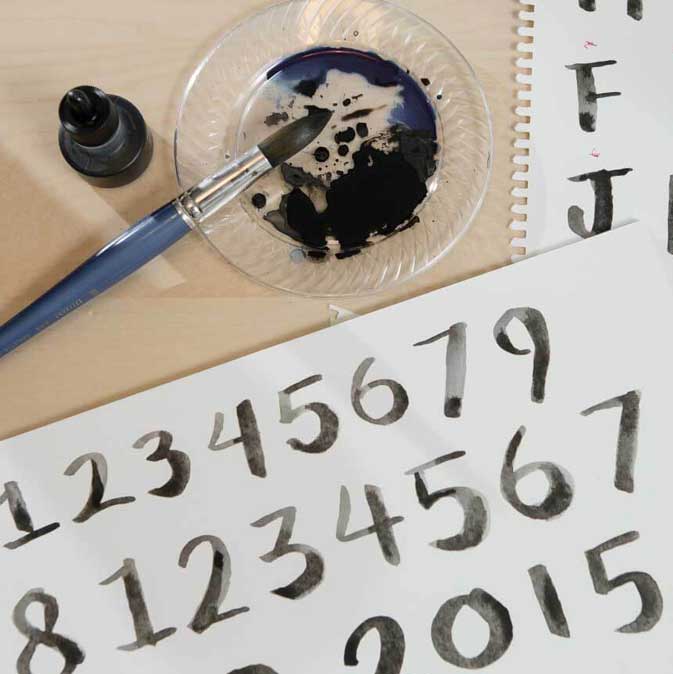 F
J
1 2 3 4 5 6 7 9
8 1 2 3 4 5 6 7
2015